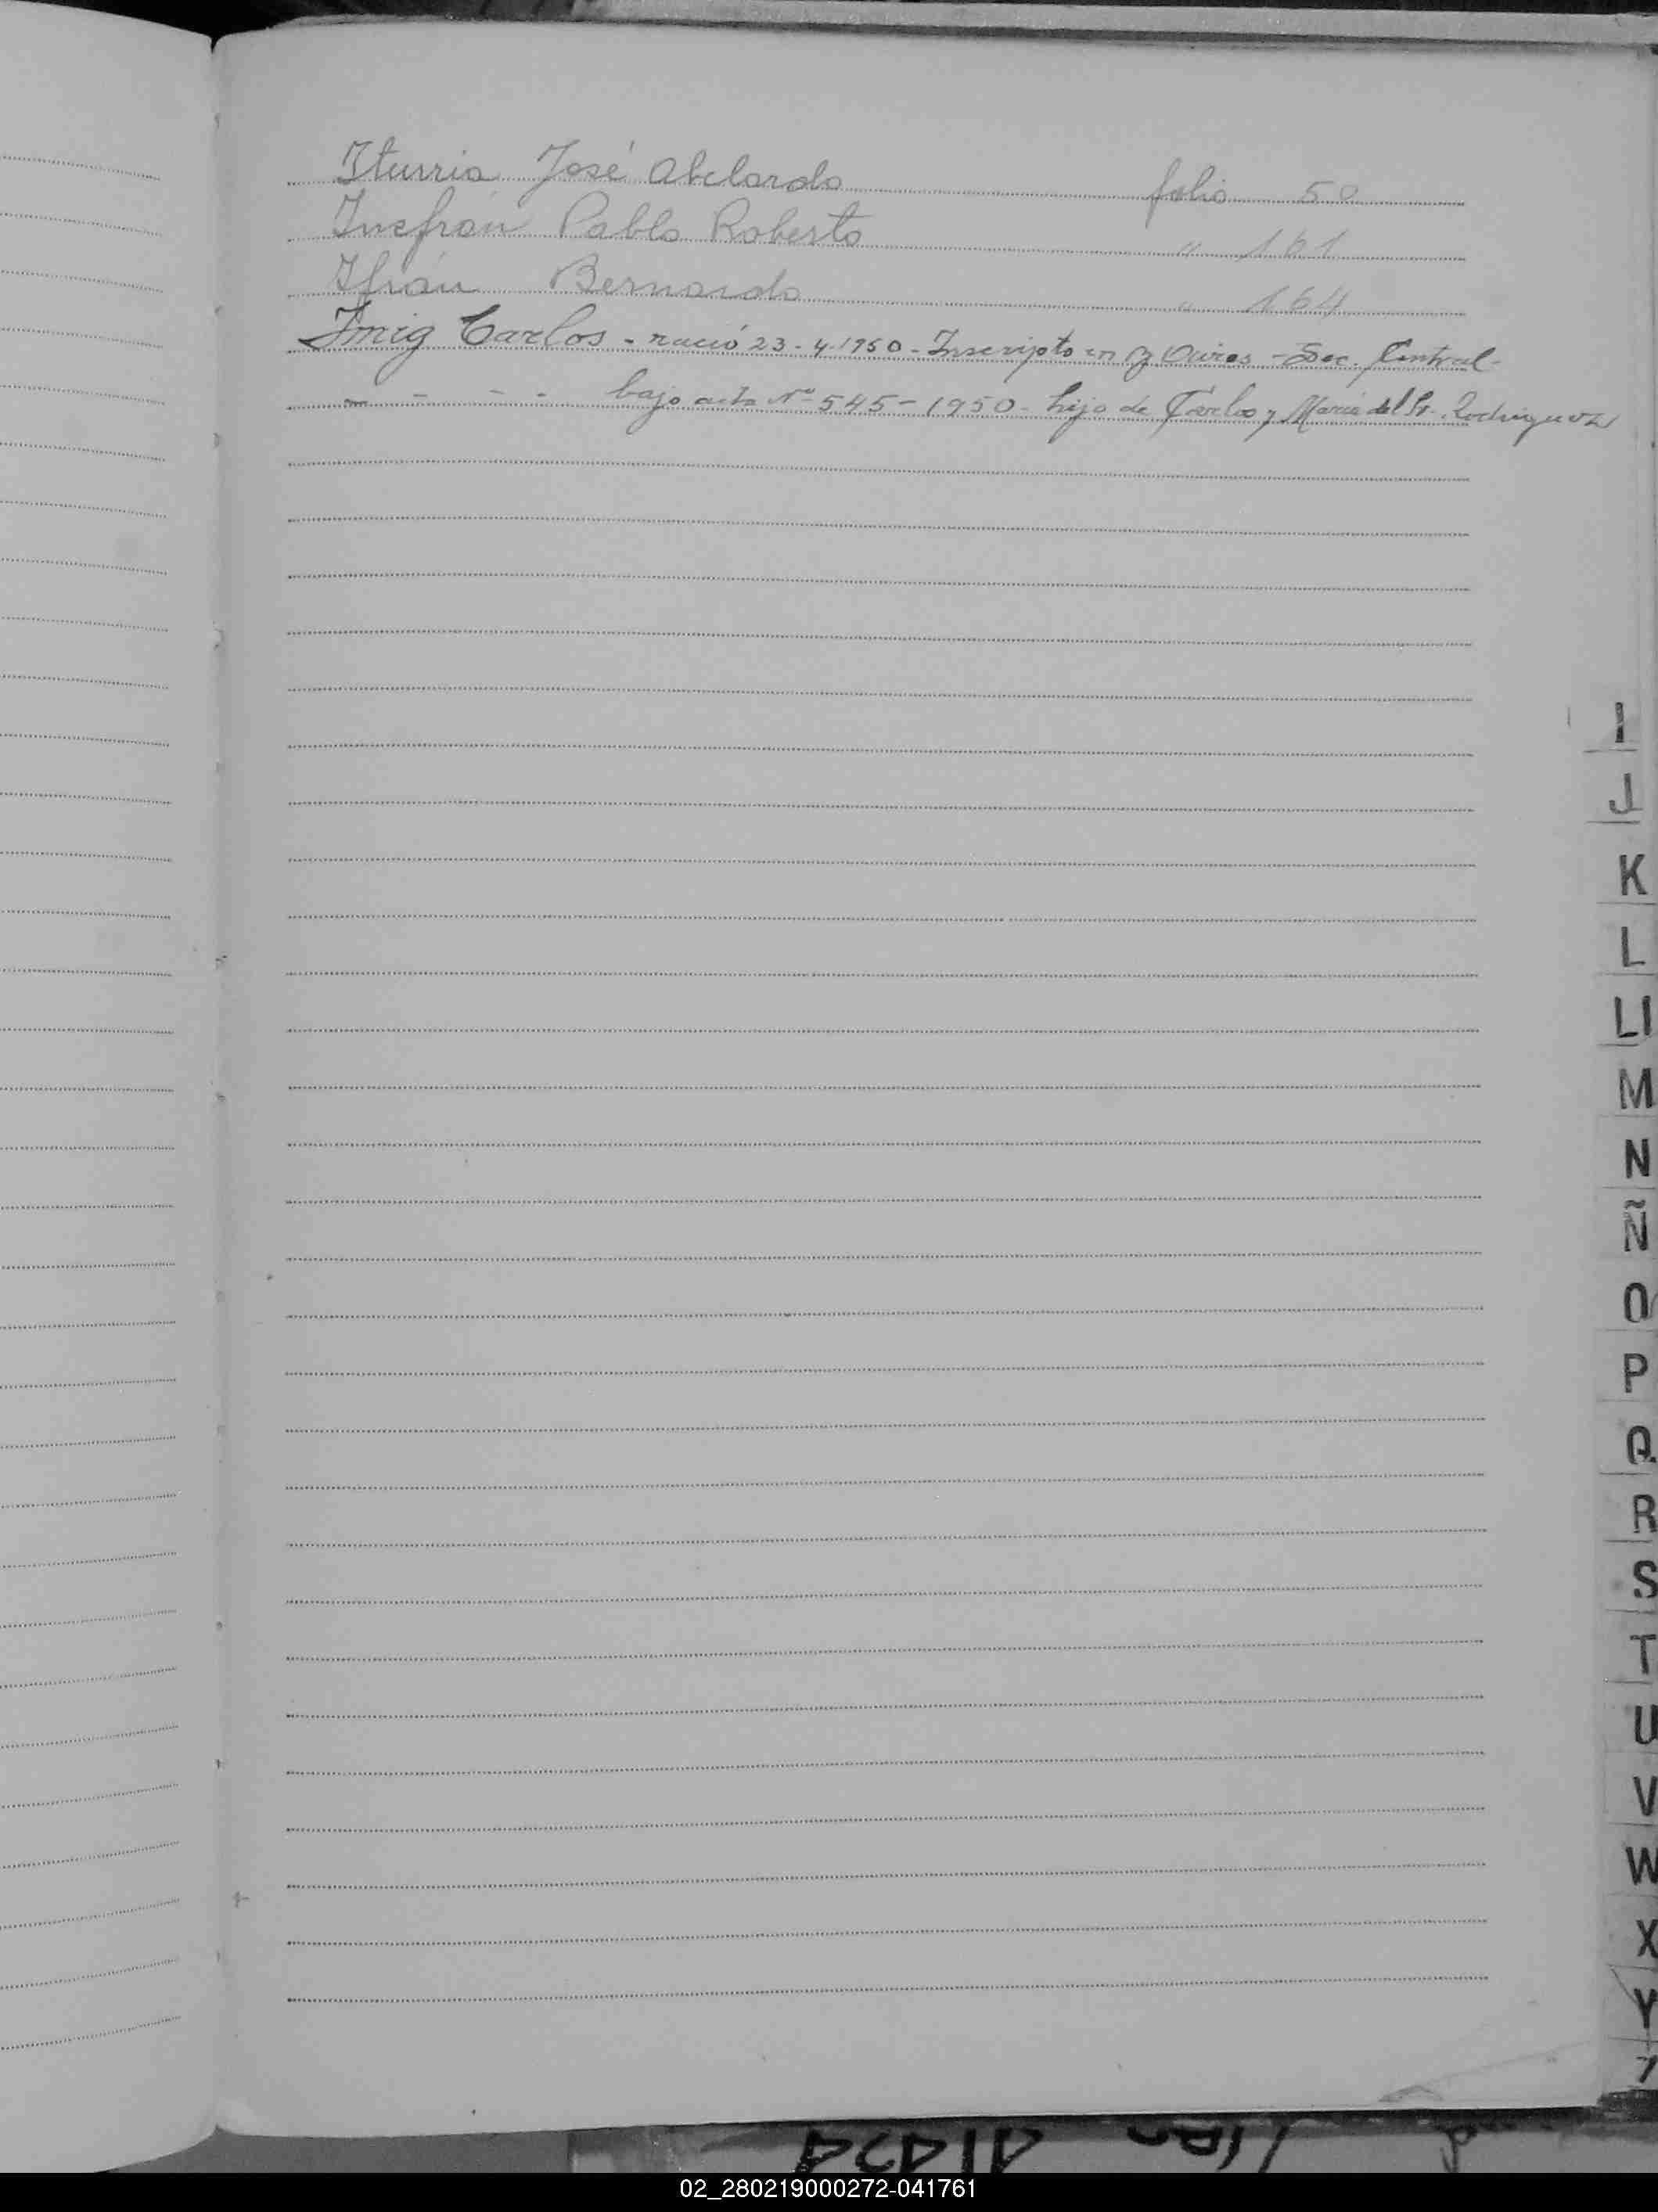 Iturria José Abelardo folio 50
Insfrán Pablo Roberto " 161
Ifrán Bernardo " 164
Imig Carlos - nació 23-4-1950 - Inscripto en Bs Aires - Sec. Central -
- - - - bajo acta Nº 545 - 1950 - hijo de Carlos y María del Rodriguez
I
J
K
L
Ll
M
N
Ñ
O
P
Q
R
S
T
U
V
W
X
Y
02_280219000272-041761